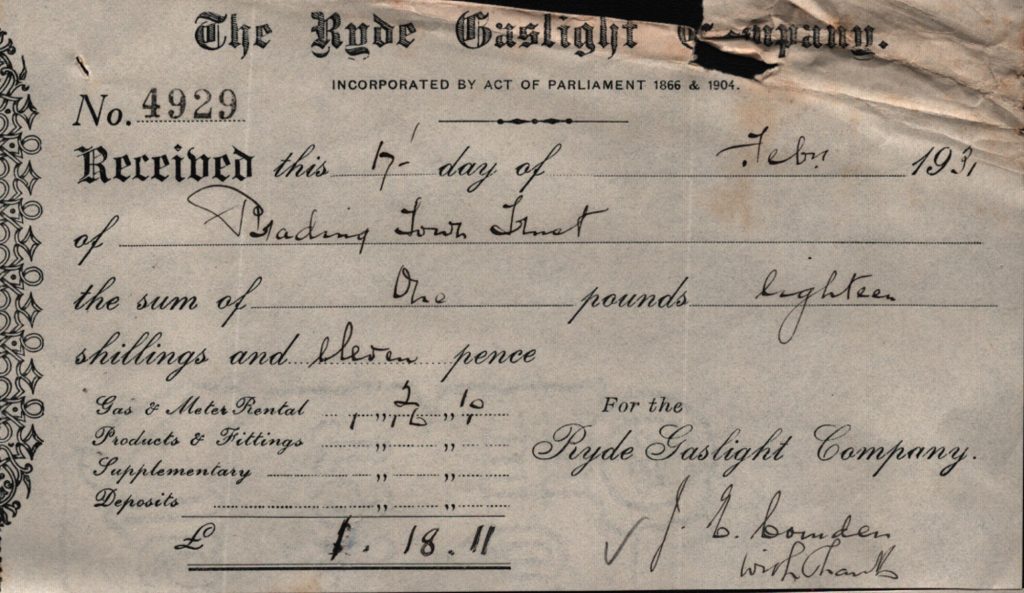 The Ryde Gaslight Company.
INCORPORATED BY ACT OF PARLIAMENT 1866 & 1904.
No. 4929
Received this 17 day of Febry 1931
of Brading Town Trust
the sum of One pounds eighteen
shillings and eleven pence
Gas & Meter Rental
Products & Fittings
Supplementary
Deposits
£ 1. 18. 11
For the
Ryde Gaslight Company.
J. E.
With thanks